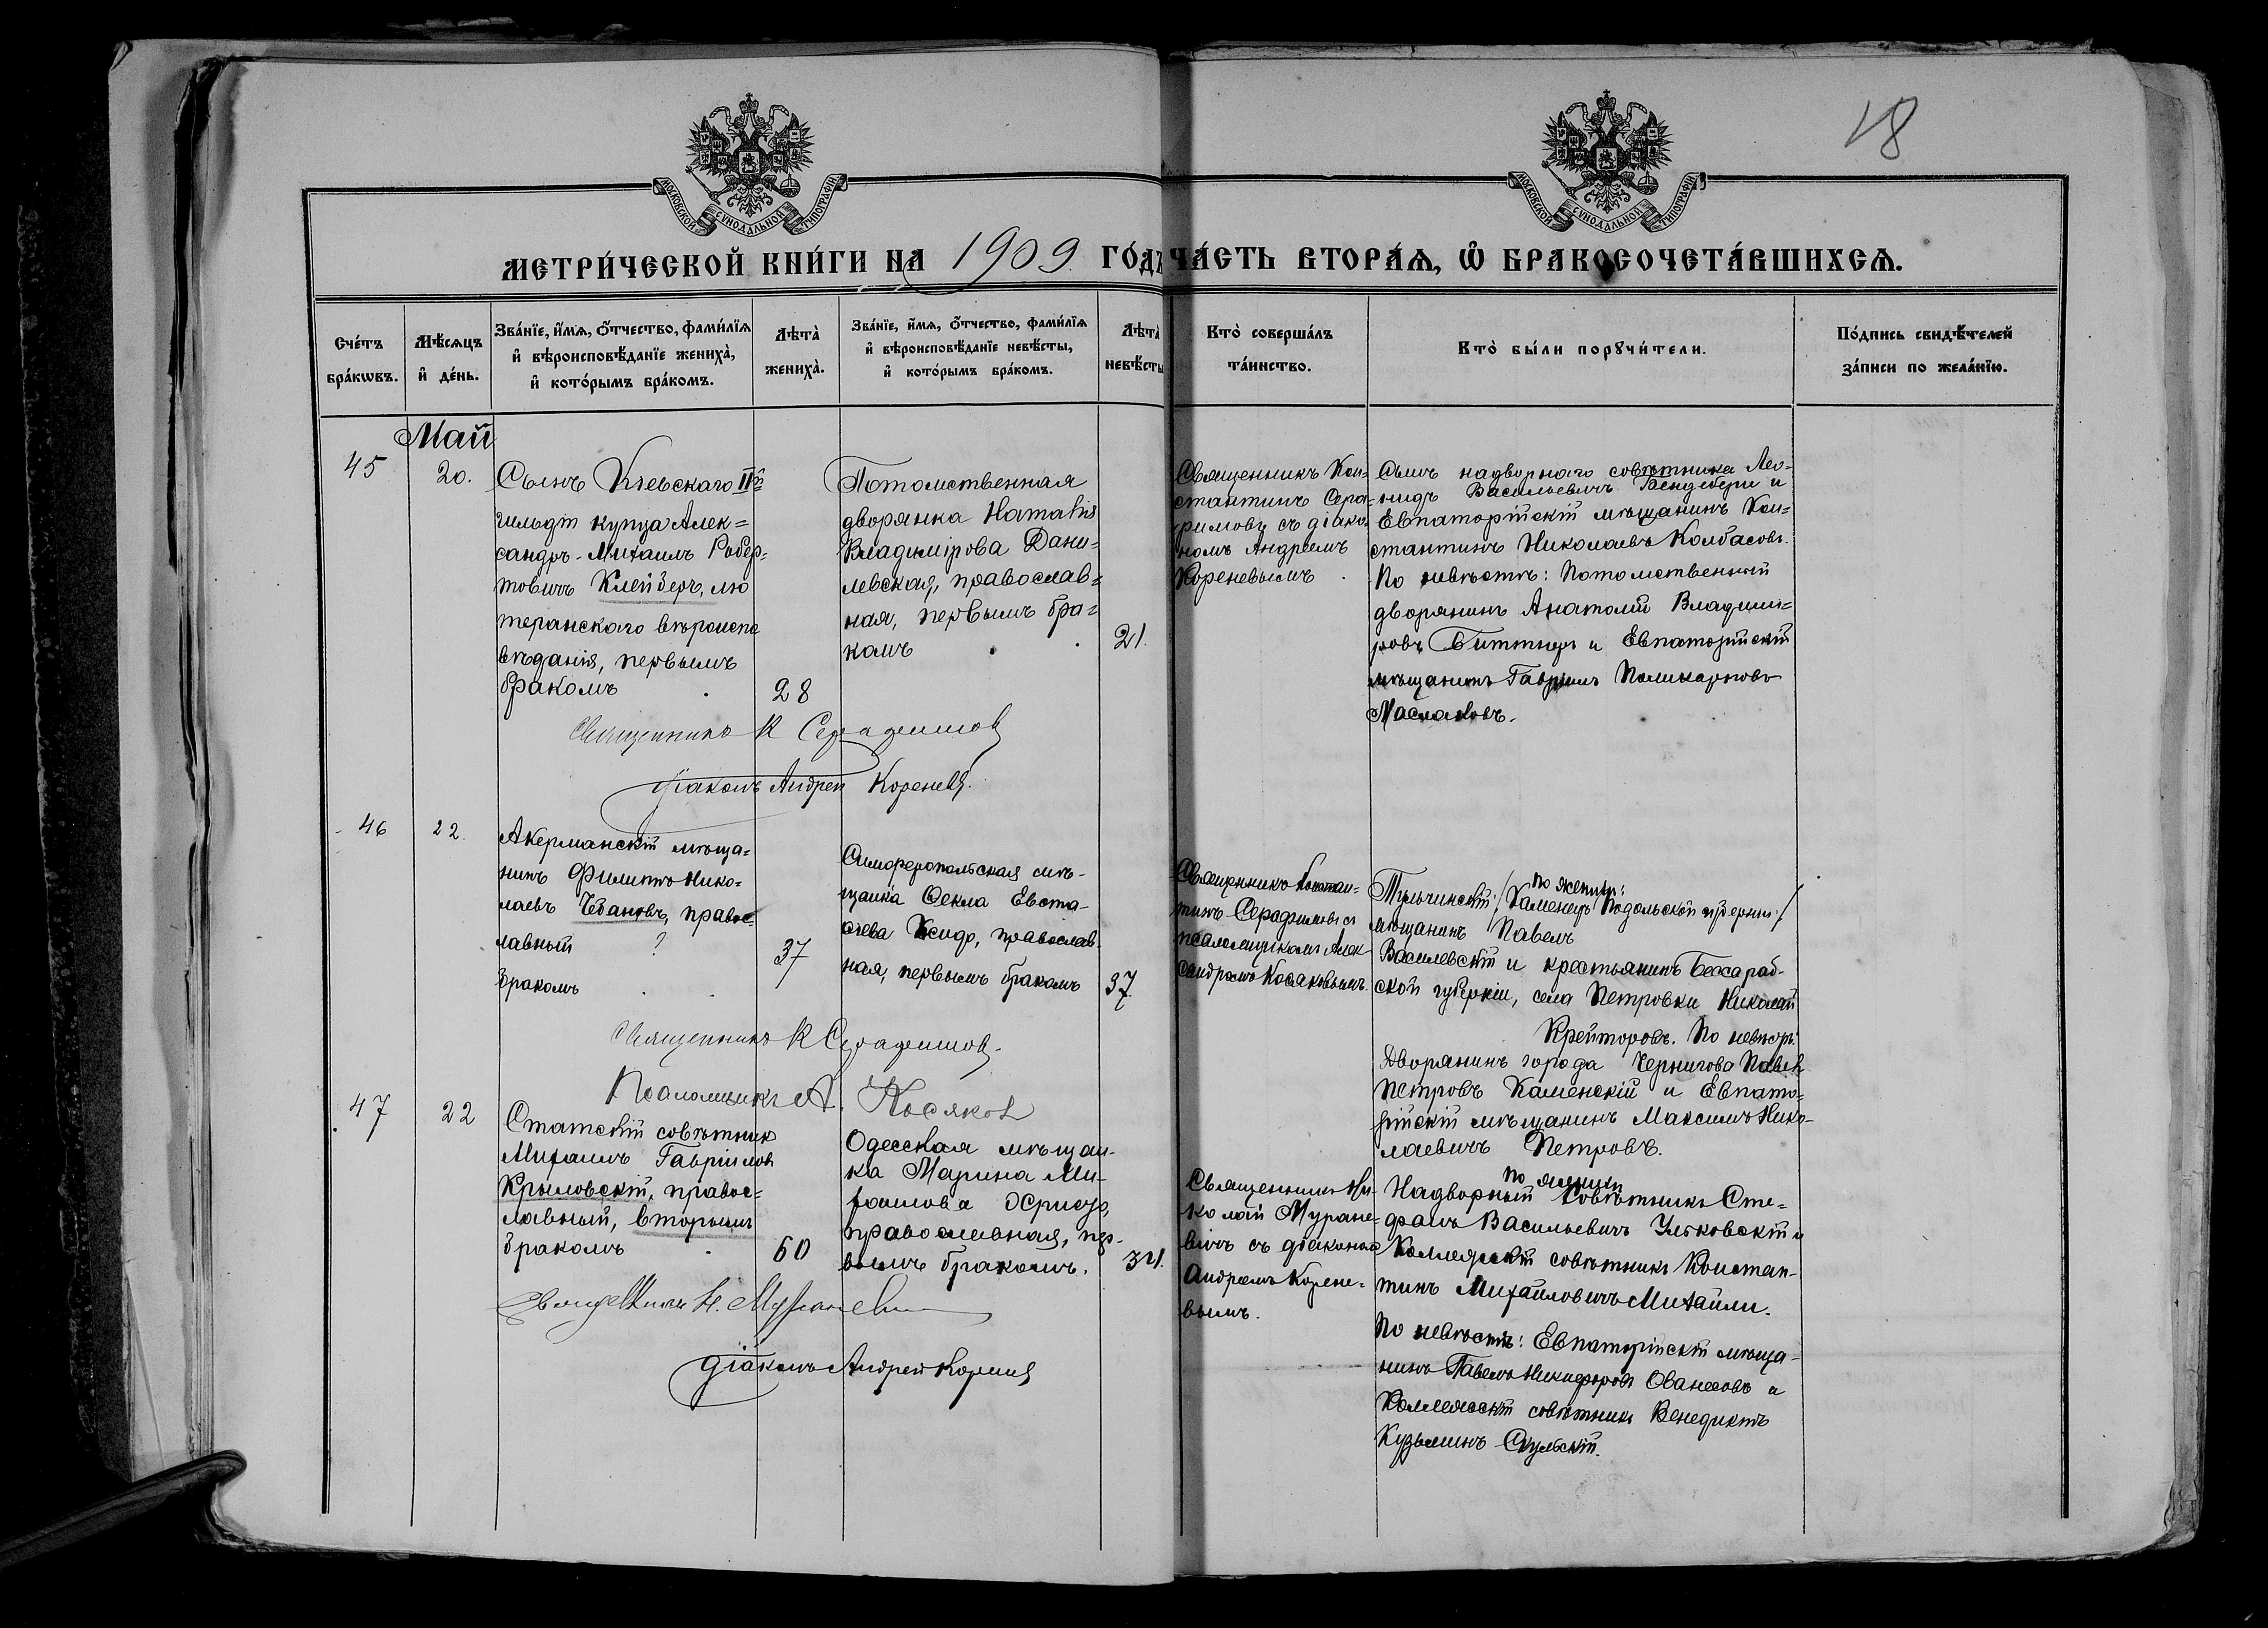 18
МОСКОВСКОЙ СУНОДАЛЬНОЙ ТИПОГРАФІИ
МОСКОВСКОЙ СУНОДАЛЬНОЙ ТИПОГРАФІИ
МЕТРИ́ЧЕСКОЙ КНИ́ГИ НА 1909 ГО́ДЪ ЧА́СТЬ ВТОРА́Ѧ, Ѽ БРАКОСОЧЕТА́ВШИХСѦ.
Сче́тъ
бра́кѡвъ.
Мѣ́сѧцъ
и҆ де́нь.
Зва́нїе, и҆́мѧ, ѻ҆́тчество, фами́лїѧ
и҆ вѣроисповѣ́данїе жениха̀,
и҆ кото́рымъ бра́комъ.
Лѣта̀
жениха̀.
Зва́нїе, и҆́мѧ, ѻ҆́тчество, фами́лїѧ
и҆ вѣроисповѣ́данїе невѣ́сты,
и҆ кото́рымъ бра́комъ.
Лѣта̀
невѣ́сты
Кто̀ соверша́лъ
та́инство.
Кто̀ бы́ли порꙋчи́тели.
По́дпись свидѣ́телей
за́писи по жела́нїю.
Май
45
20.
Сынъ Кіевскаго II й
гильдіи купца Алек=
сандръ-Михаилъ Робер=
товичъ Клейзеръ, лю
теранскаго вѣроиспо
вѣданія, первымъ
бракомъ
28
Потомственная
дворянка Наталія
Владимірова Дани=
левская, православ=
ная, первымъ бра=
комъ
21.
Священникъ Кон=
стантинъ Сера=
фимовъ съ діако
номъ Андреемъ
Кореневымъ
Сынъ надворнаго совѣтника Лео=
нидъ Васильевичъ и
Евпаторійскій мѣщанинъ Кон=
стантинъ Николаевъ Колбасовъ.
По невѣстѣ: Потомственный
дворянинъ Анатолій Владими=
ровъ Биттнеръ и Евпаторійскій
мѣщанинъ Гавріилъ Поликарповъ
Маслаковъ.
Священникъ К Серафимовъ
Діаконъ Андрей Кореневъ.
46
22.
Акерманскій мѣща=
нинъ Филиппъ Нико=
лаевъ Чебановъ, правос
лавный ?
бракомъ
37
Симферопольская мѣ-
щанка Ѳекла Евста-
ѳіева православ-
ная, первымъ бракомъ
37.
Священникъ Констан=
тинъ Серафимовъ съ
псаломщикомъ Алек
сандромъ Косяковымъ.
По жениху:
Тульчинскій /Каменецъ Подольской губерніи/
мѣщанинъ Павелъ
Василевскій и крестьянинъ Бессараб-
ской губерніи, села Петровки Николай
Крейторовъ. По невѣстѣ:
Дворянинъ города Чернигова Павелъ
Петровъ Каменскій и Евпато=
рійскій мѣщанинъ Максимъ Нико-
лаевичъ Петровъ.
Священникъ К Серафимовъ.
Псаломщикъ А. Косяковъ
47
22
Статскій совѣтникъ
Михаилъ Гавріиловъ
Крыловскій, правос=
лавный, вторымъ
бракомъ
60
Одесская мѣщан-
ка Марина Ми-
хаилова
православная, пер-
вымъ бракомъ.
34.
Священникъ Ни-
колай Муране-
вичъ съ діакономъ
Андреемъ Корене-
вымъ.
По жениху
Надворный Совѣтникъ Сте-
фанъ Васильевичъ Ульковскій и
Коллежскій совѣтникъ Констан-
тинъ Михайловичъ Михайли.
По невѣстѣ: Евпаторійскій мѣща-
нинъ Павелъ Никифоровъ Ованесовъ и
Коллежскій совѣтникъ Венедиктъ
Кузьминъ Скульскій.
Священникъ Н. Мураневич
Діаконъ Андрей Кореневъ